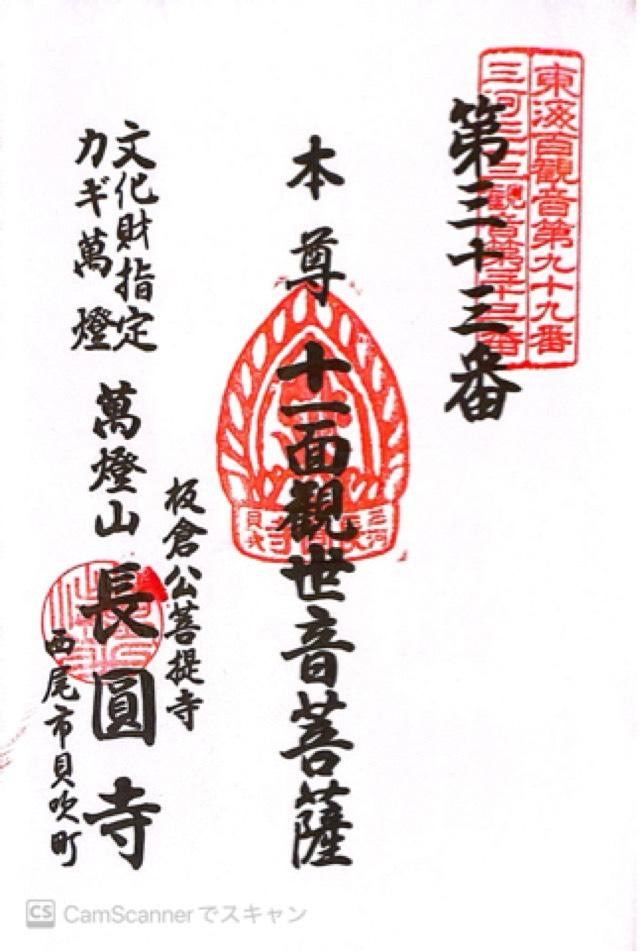 東海百觀音第九十九番
三河三十三觀音第三十三番
第三十三番
本尊十一面觀世音菩薩
三河
貝吹
板倉公菩提寺
文化財指定
カギ萬燈
萬燈山長圓寺
西尾市貝吹町
CS CamScannerでスキャン